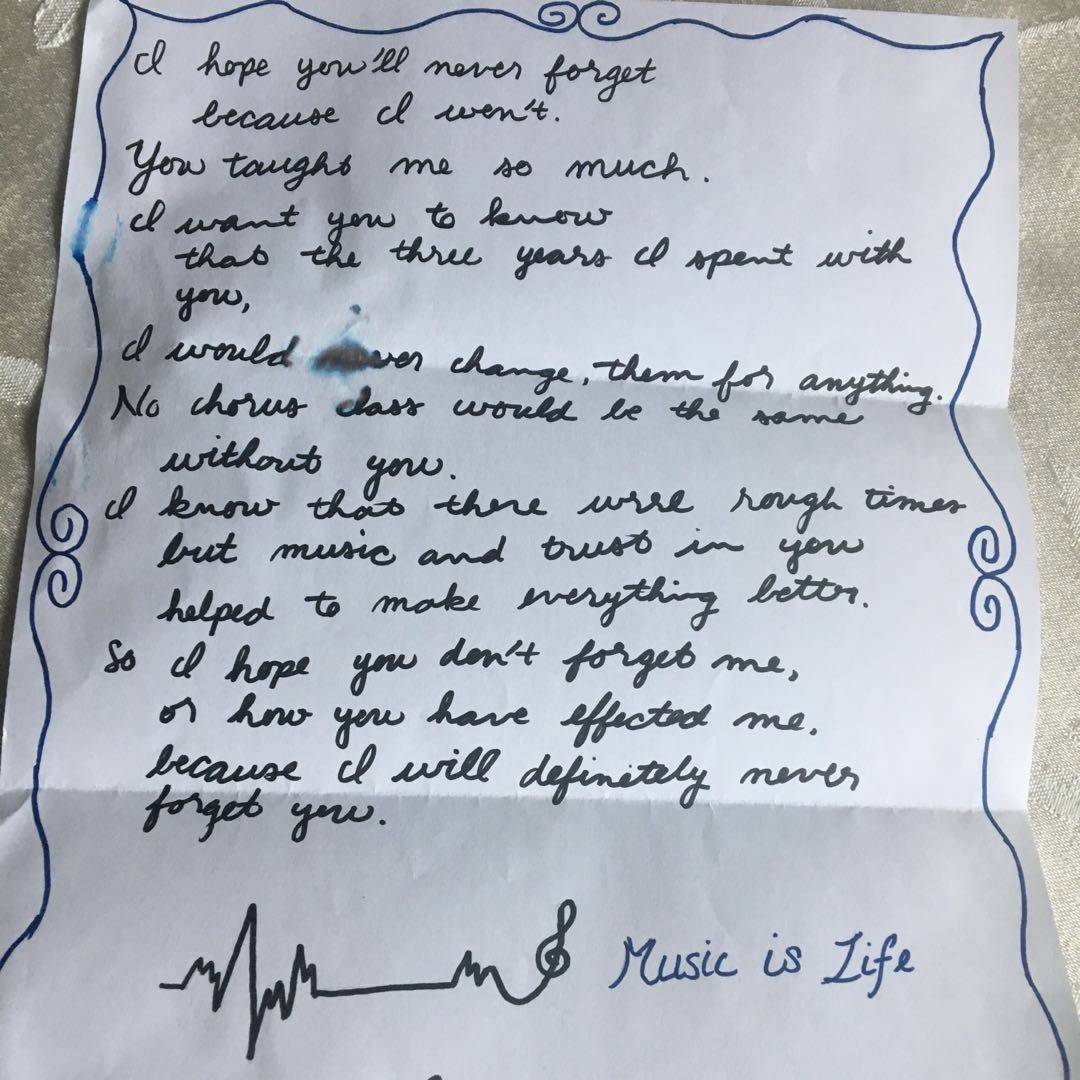 I hope you'll never forget
because I won't.
You taught me so much.
I want you to know
that the three years I spent with
you,
I would never change, them for anything.
No chorus class would be the same
without you.
I know that there were rough times
but music and trust in you
helped to make everything better.
So I hope you don't forget me,
or how you have effected me,
because I will definetely never
forget you.
Music is Life